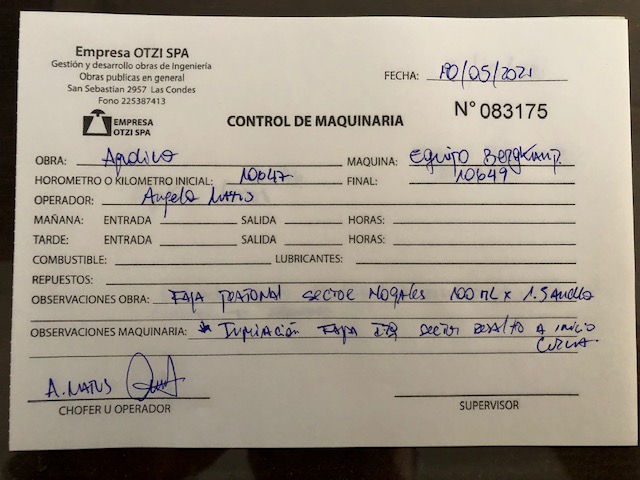 Empresa OTZI SPA
Gestión y desarrollo obras de Ingeniería
Obras publicas en general
San Sebastian 2957 Las Condes
Fono 225387413
FECHA: 10/05/2021
EMPRESA
OTZI SPA
CONTROL DE MAQUINARIA
N° 083175
OBRA: MAQUINA: Equipo
HOROMETRO O KILOMETRO INICIAL: 10647 FINAL: 10649
OPERADOR: Angelo Matus
MAÑANA: ENTRADA SALIDA HORAS:
TARDE: ENTRADA SALIDA HORAS:
COMBUSTIBLE: LUBRICANTES:
REPUESTOS:
OBSERVACIONES OBRA: Faja Peatonal sector Nogales 100 ML x 1.5 Ancho
OBSERVACIONES MAQUINARIA: * Faja sector a inicio
A. Matus
CHOFER U OPERADOR
SUPERVISOR